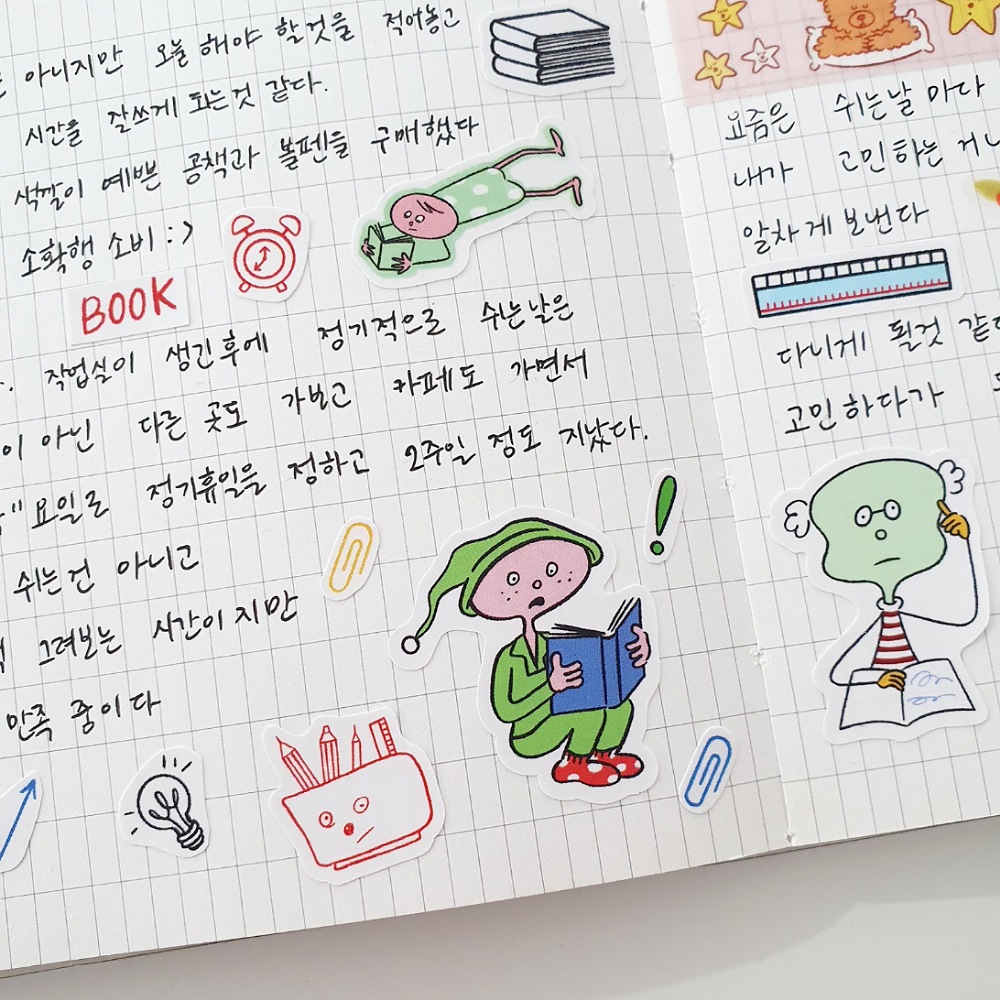 아니지만 오늘 해야 할것을 적어놓고
시간을 잘쓰게 되는것 같다.
색깔이 예쁜 공책과 볼펜을 구매했다
소확행 소비 :>
BOOK
작업실이 생긴후에 정기적으로 쉬는날은
이 아닌 다른 곳도 가보고 카페도 가면서
"요일로 정기휴일을 정하고 2주일 정도 지났다.
쉬는건 아니고
그려보는 시간이지만
만족 중이다
!
요즘은 쉬는날 마다
내가 고민하는 거
알차게 보낸다
다니게 될것 같
고민하다가